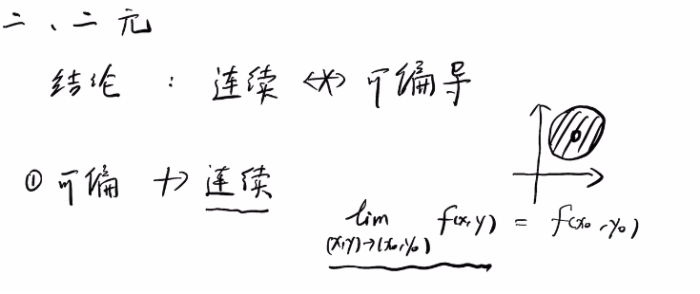 二、二元
结论：连续 ⇎ 可偏导
① 可偏 ↛ 连续
lim f(x,y) = f(x₀,y₀)
(x,y)→(x₀,y₀)